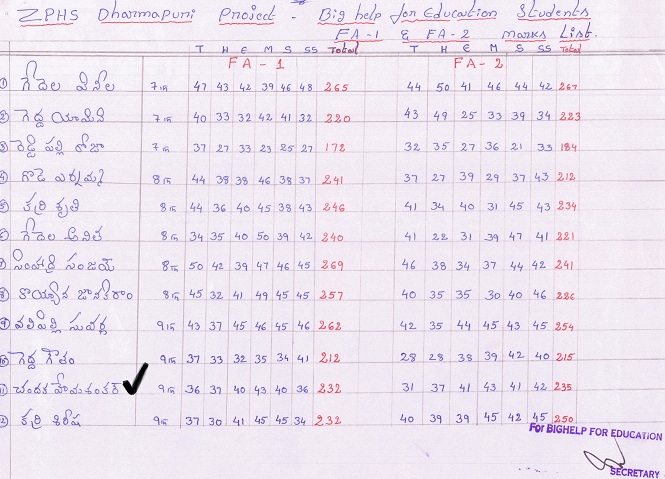 ZPHS Dharmapuri Project - Big help for Education Students
FA-1 & FA-2 marks List.
T H E M S SS Total T H E M S SS Total
FA-1 FA-2
① గేదెల వినీల 7th 47 43 42 39 46 48 265 44 50 41 46 44 42 267
② గెద్ద యామిని 7th 40 33 32 42 41 32 220 43 49 25 33 39 34 223
③ రెడ్డి పల్లి రోజా 7th 37 27 33 23 25 27 172 32 35 27 36 21 33 184
④ గొడె 8th 44 38 38 46 38 37 241 37 27 39 29 37 43 212
⑤ కర్రి శృతి 8th 44 36 40 45 38 43 246 41 34 40 31 45 43 234
⑥ గేదెల అనిత 8th 34 35 40 50 39 42 240 41 22 31 39 47 41 221
⑦ సింహాద్రి సంజయ్ 8th 50 42 39 47 46 45 269 46 38 34 37 44 42 241
⑧ కొయ్యాన జానకీరాం 8th 45 32 41 49 45 45 257 40 35 35 30 40 46 226
⑨ వలిపిల్లి సువర్ణ 9th 43 37 45 46 45 46 262 42 35 44 45 43 45 254
⑩ గెద్ద గౌతం 9th 37 33 32 35 34 41 212 28 28 38 39 42 40 215
⑪ చందక హేమశంకర్ ✓ 9th 36 37 40 43 40 36 232 31 37 41 43 41 42 235
⑫ కర్రి శిరీష 9th 37 30 41 45 45 34 232 40 39 39 45 42 45 250
For BIGHELP FOR EDUCATION
SECRETARY